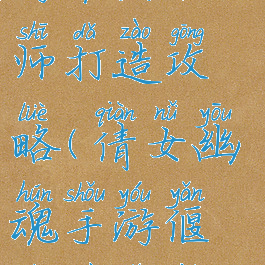 shī dǎ zào gōng
师打造攻
lüè qiàn nǚ yōu
略(倩女幽
hún shǒu yóu yǎn
魂手游偃